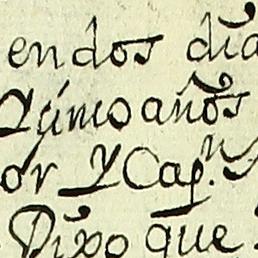 en dos dia
años
or Y Cap.n
Dixo que